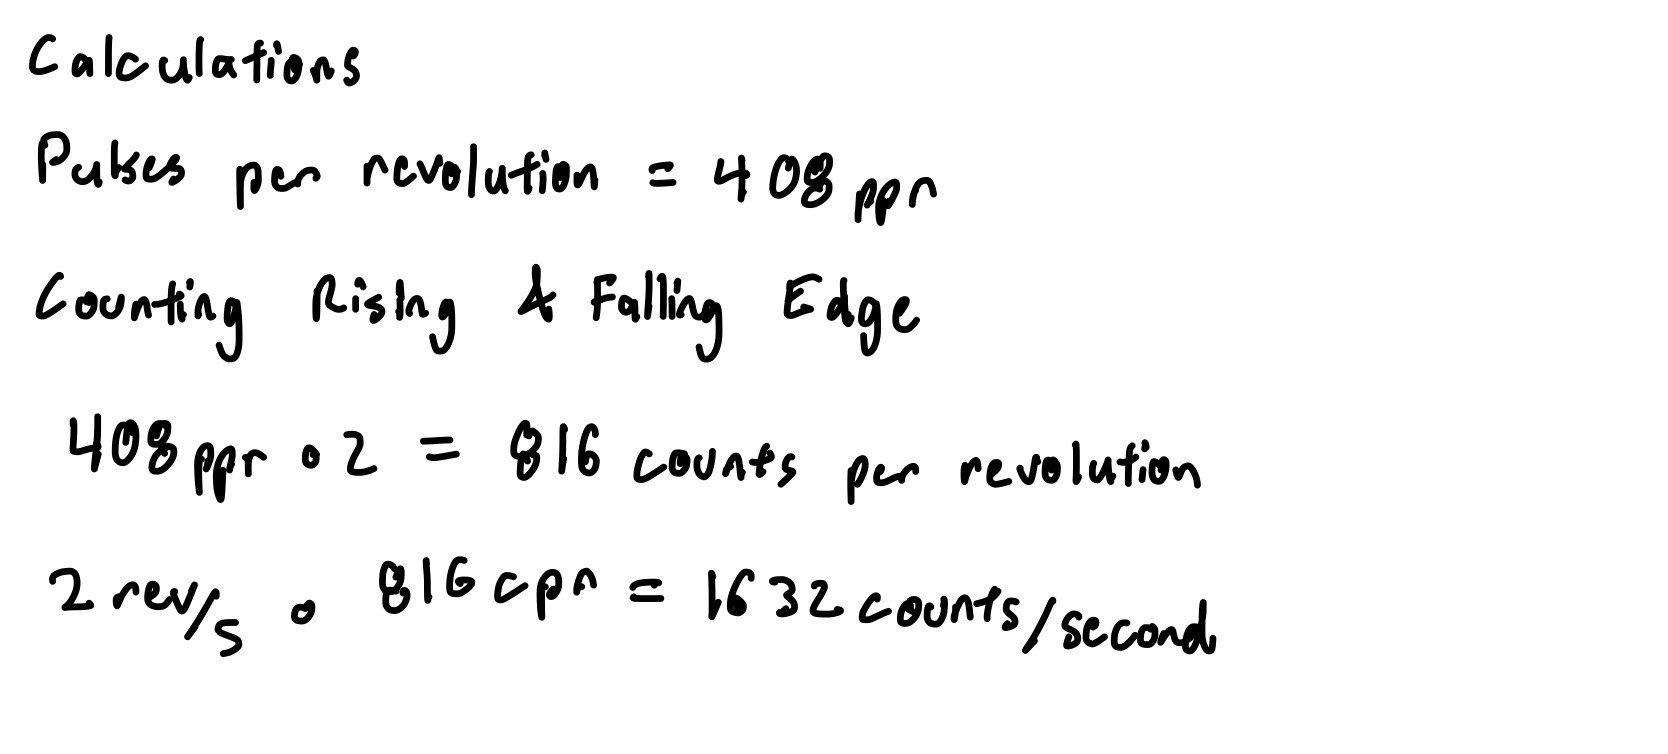 Calculations
Pulses per revolution = 408 ppr
Counting Rising & Falling Edge
408 ppr • 2 = 816 counts per revolution
2 rev/s • 816 cpr = 1632 counts/second